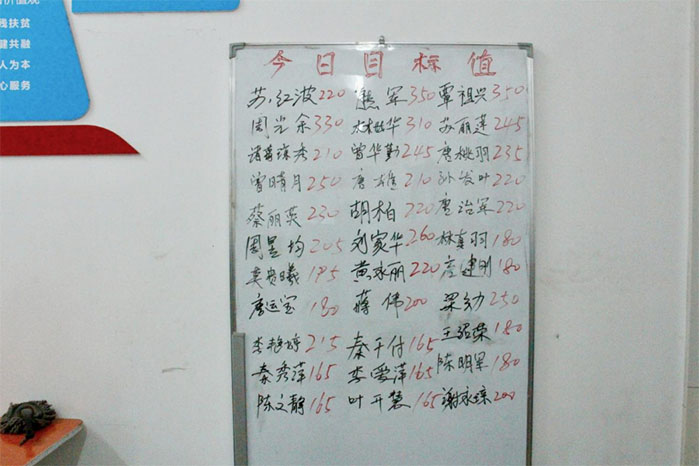 残扶贫
健共融
人为本
心服务
今日目标值
苏红波220 熊军350 覃祖兴350
周光余330 林桂华310 苏丽莲245
诸葛琼秀210 曾华勤245 唐桃羽235
曾晴月250 唐雄210 沙发叶220
蔡丽英230 胡柏220 唐治军220
周昱均205 刘家华260 林真羽180
莫贵曦195 黄永丽220 唐建明180
唐运宝180 蒋伟200 梁幼250
李艳婷215 秦千付165 王绍荣180
秦秀萍165 李爱萍165 陈明军180
陈文静165 叶开慧165 谢永琼200